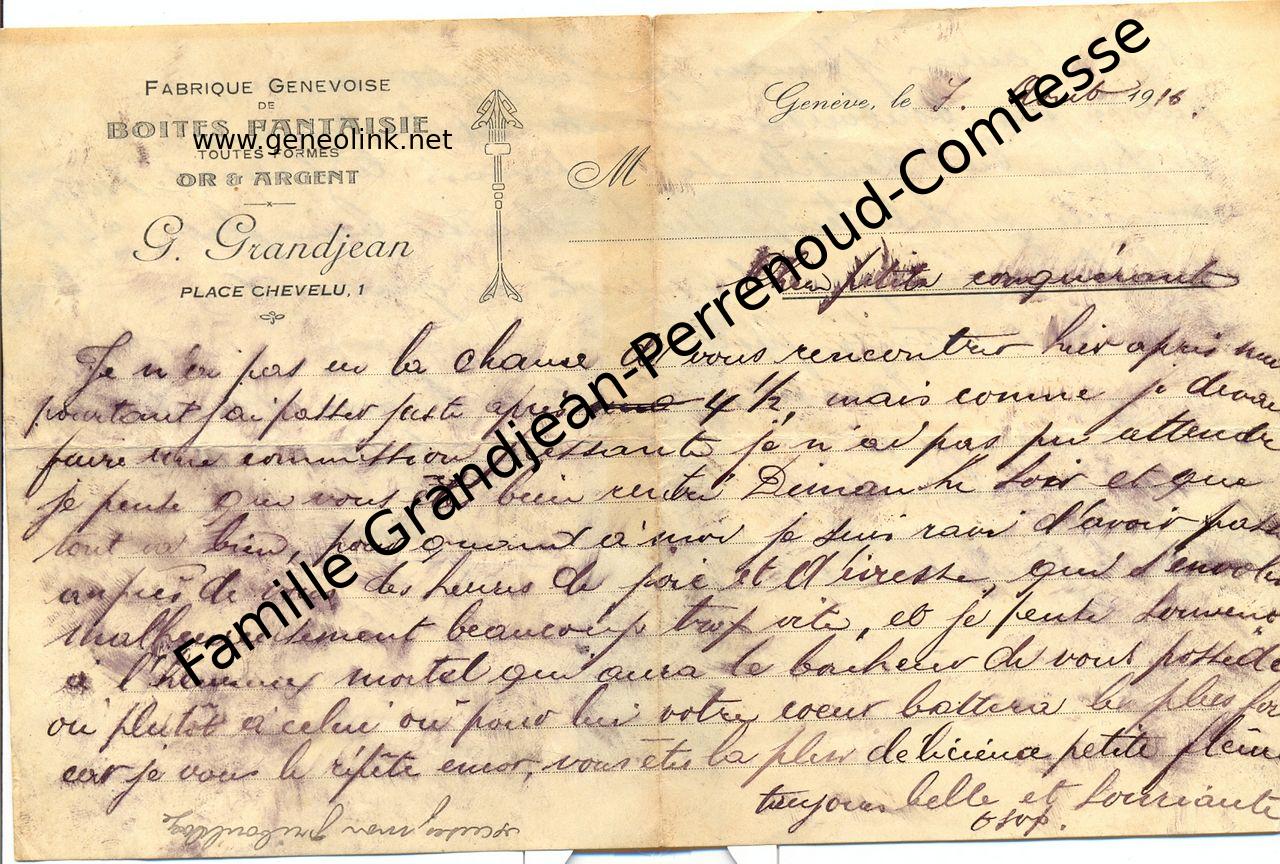 FABRIQUE GENEVOISE
DE
BOITES FANTAISIE
www.geneolink.net
TOUTES FORMES
OR & ARGENT
G. Grandjean
PLACE CHEVELU, 1
Genève, le 7. Août 1916
M
petite conquérante
Je n'ai pas eu la chance de vous rencontrer hier après
pourtant j'ai passer juste après 4 ½, mais comme je devai
faire une commission je n'ai pas pu attendre
je pense que vous bien rentré Dimanche soir et que
tout va bien, pour quant à moi je suis ravi d'avoir
auprès de des heures de joie et d'ivresse, qui s'envole
malheureusement beaucoup trop vite, et je pense souvent
à l'heureux mortel qui aura le bonheur de vous posséde
ou plutôt à celui où pour lui votre coeur battera le plus for
car je vous le répète encor, vous êtes la plus délicieuse petite fleur
toujours belle et souriante
Famille Grandjean-Perrenoud-Comtesse